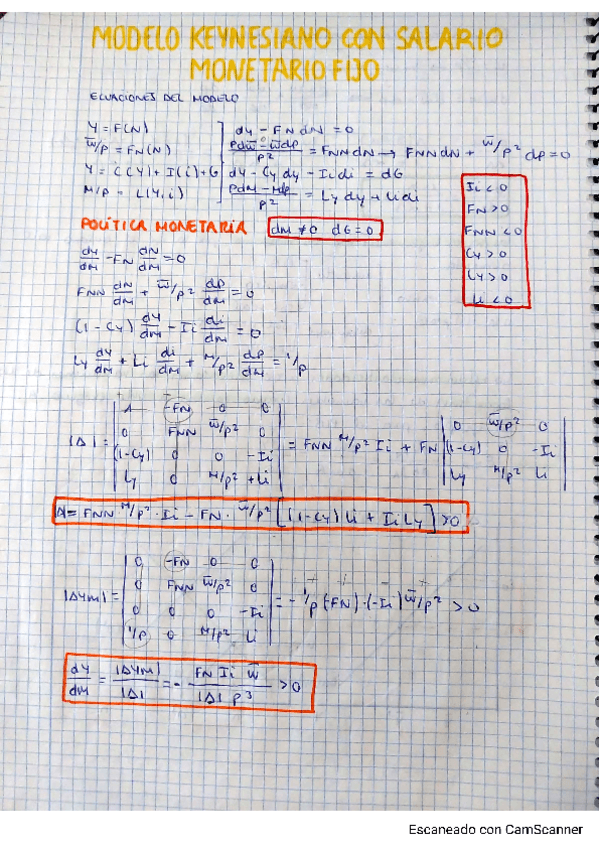 MODELO KEYNESIANO CON SALARIO
MONETARIO FIJO
ECUACIONES DEL MODELO
Y = F(N) dy - FN dN = 0
W̅/P = FN(N) (Pdw̅ - w̅dp)/P² = FNN dN → FNN dN + W̅/P² dp = 0
Y = C(Y) + I(i) + G dy - Cy dy - Ii di = dG
M/P = L(Y,i) (PdM - Mdp)/P² = Ly dy + Li di
Ii < 0
FN > 0
FNN < 0
Cy > 0
Ly > 0
Li < 0
POLÍTICA MONETARIA dM ≠ 0 dG = 0
dy/dM - FN dN/dM = 0
FNN dN/dM + W̅/P² dp/dM = 0
(1 - Cy) dy/dM - Ii di/dM = 0
Ly dy/dM + Li di/dM + M/P² dp/dM = 1/P
|Δ| = | 1 -FN 0 0 | 0 FNN W̅/P² 0 | (1-Cy) 0 0 -Ii | Ly 0 M/P² +Li | = FNN M/P² Ii + FN | 0 W̅/P² 0 | (1-Cy) 0 -Ii | Ly M/P² Li |
Δ = FNN · M/P² · Ii - FN · W̅/P² [(1-Cy) Li + Ii Ly] > 0
|ΔYM| = | 0 -FN 0 0 | 0 FNN W̅/P² 0 | 0 0 0 -Ii | 1/P 0 M/P² Li | = - 1/P (-FN) · (-Ii) W̅/P² > 0
dy/dM = |ΔYM|/|Δ| = - FN Ii W̅/|Δ| P³ > 0
Escaneado con CamScanner